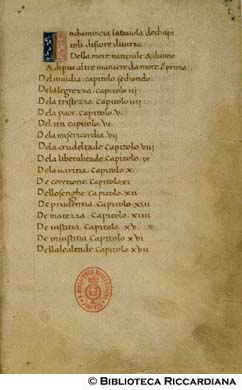 Inchomincia la tavola de chapi
toli di fiore di virtu
Della more naturale & divino
& di piu altre maniere da more. C. primo.
Del invidia. capitolo sechondo.
De la legrezza. capitolo iii
De la tristezza. capitolo iiii
De la pace. capitolo. v.
Del ira capitolo. vi.
De la misericordia. vii
De la crudeltade Capitolo viii
De la liberalitade. Capitolo. ix
De la varitia. Capitolo. x.
De coretione. Capitolo xi
De losenghe. Capitolo. xii
De prudentia. Capitolo. xiii
De matezza. Capitolo. xiiii
De iustitia. Capitolo. xv.
De iniustitia. Capitolo xvi
Della lealtade. Capitolo xvii
© BIBLIOTECA RICCARDIANA